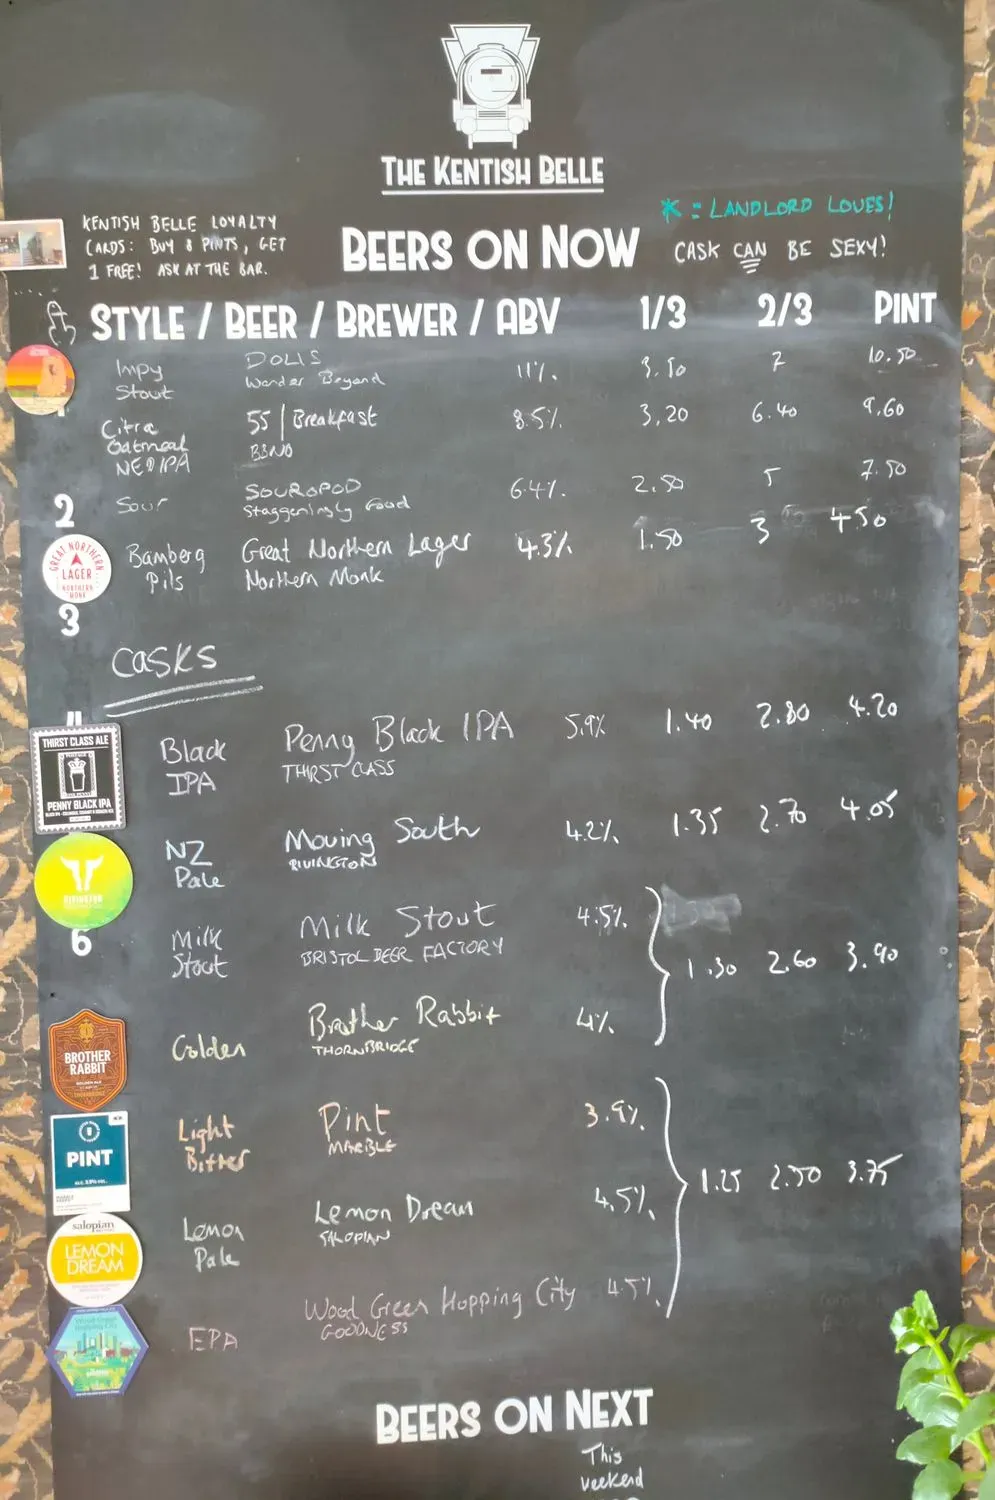 THE KENTISH BELLE
KENTISH BELLE LOYALTY
CARDS: BUY 8 PINTS, GET
1 FREE! ASK AT THE BAR.
* = LANDLORD LOVES!
BEERS ON NOW
CASK CAN BE SEXY!
STYLE / BEER / BREWER / ABV 1/3 2/3 PINT
Impy Stout DOLIS 11%. 3.50 7 10.50
Wander Beyond
Citra Oatmeal NEDIPA 55 | Breakfast 8.5% 3.20 6.40 9.60
BBNO
2
Sour SOUROPOD 6.4%. 2.50 5 7.50
Staggeringly Good
GREAT NORTHERN
LAGER
NORTHERN
MONK
Bamberg Pils Great Northern Lager 4.3% 1.50 3 4.50
Northern Monk
3
CASKS
THIRST CLASS ALE
PENNY BLACK IPA
Black IPA Penny Black IPA 5.9% 1.40 2.80 4.20
THIRST CLASS
RIVINGTON
NZ Pale Moving South 4.2%. 1.35 2.70 4.05
RIVINGTON
6
Milk Stout Milk Stout 4.5%.
BRISTOL BEER FACTORY
1.30 2.60 3.90
BROTHER
RABBIT
GOLDEN ALE
Golden Brother Rabbit 4%
THORNBRIDGE
PINT
Light Bitter Pint 3.9%.
MARBLE
1.25 2.50 3.75
salopian
LEMON
DREAM
Lemon Pale Lemon Dream 4.5%.
SALOPIAN
Wood Green
Hopping City
EPA Wood Green Hopping City 4.5%.
GOODNESS
BEERS ON NEXT
This
weekend